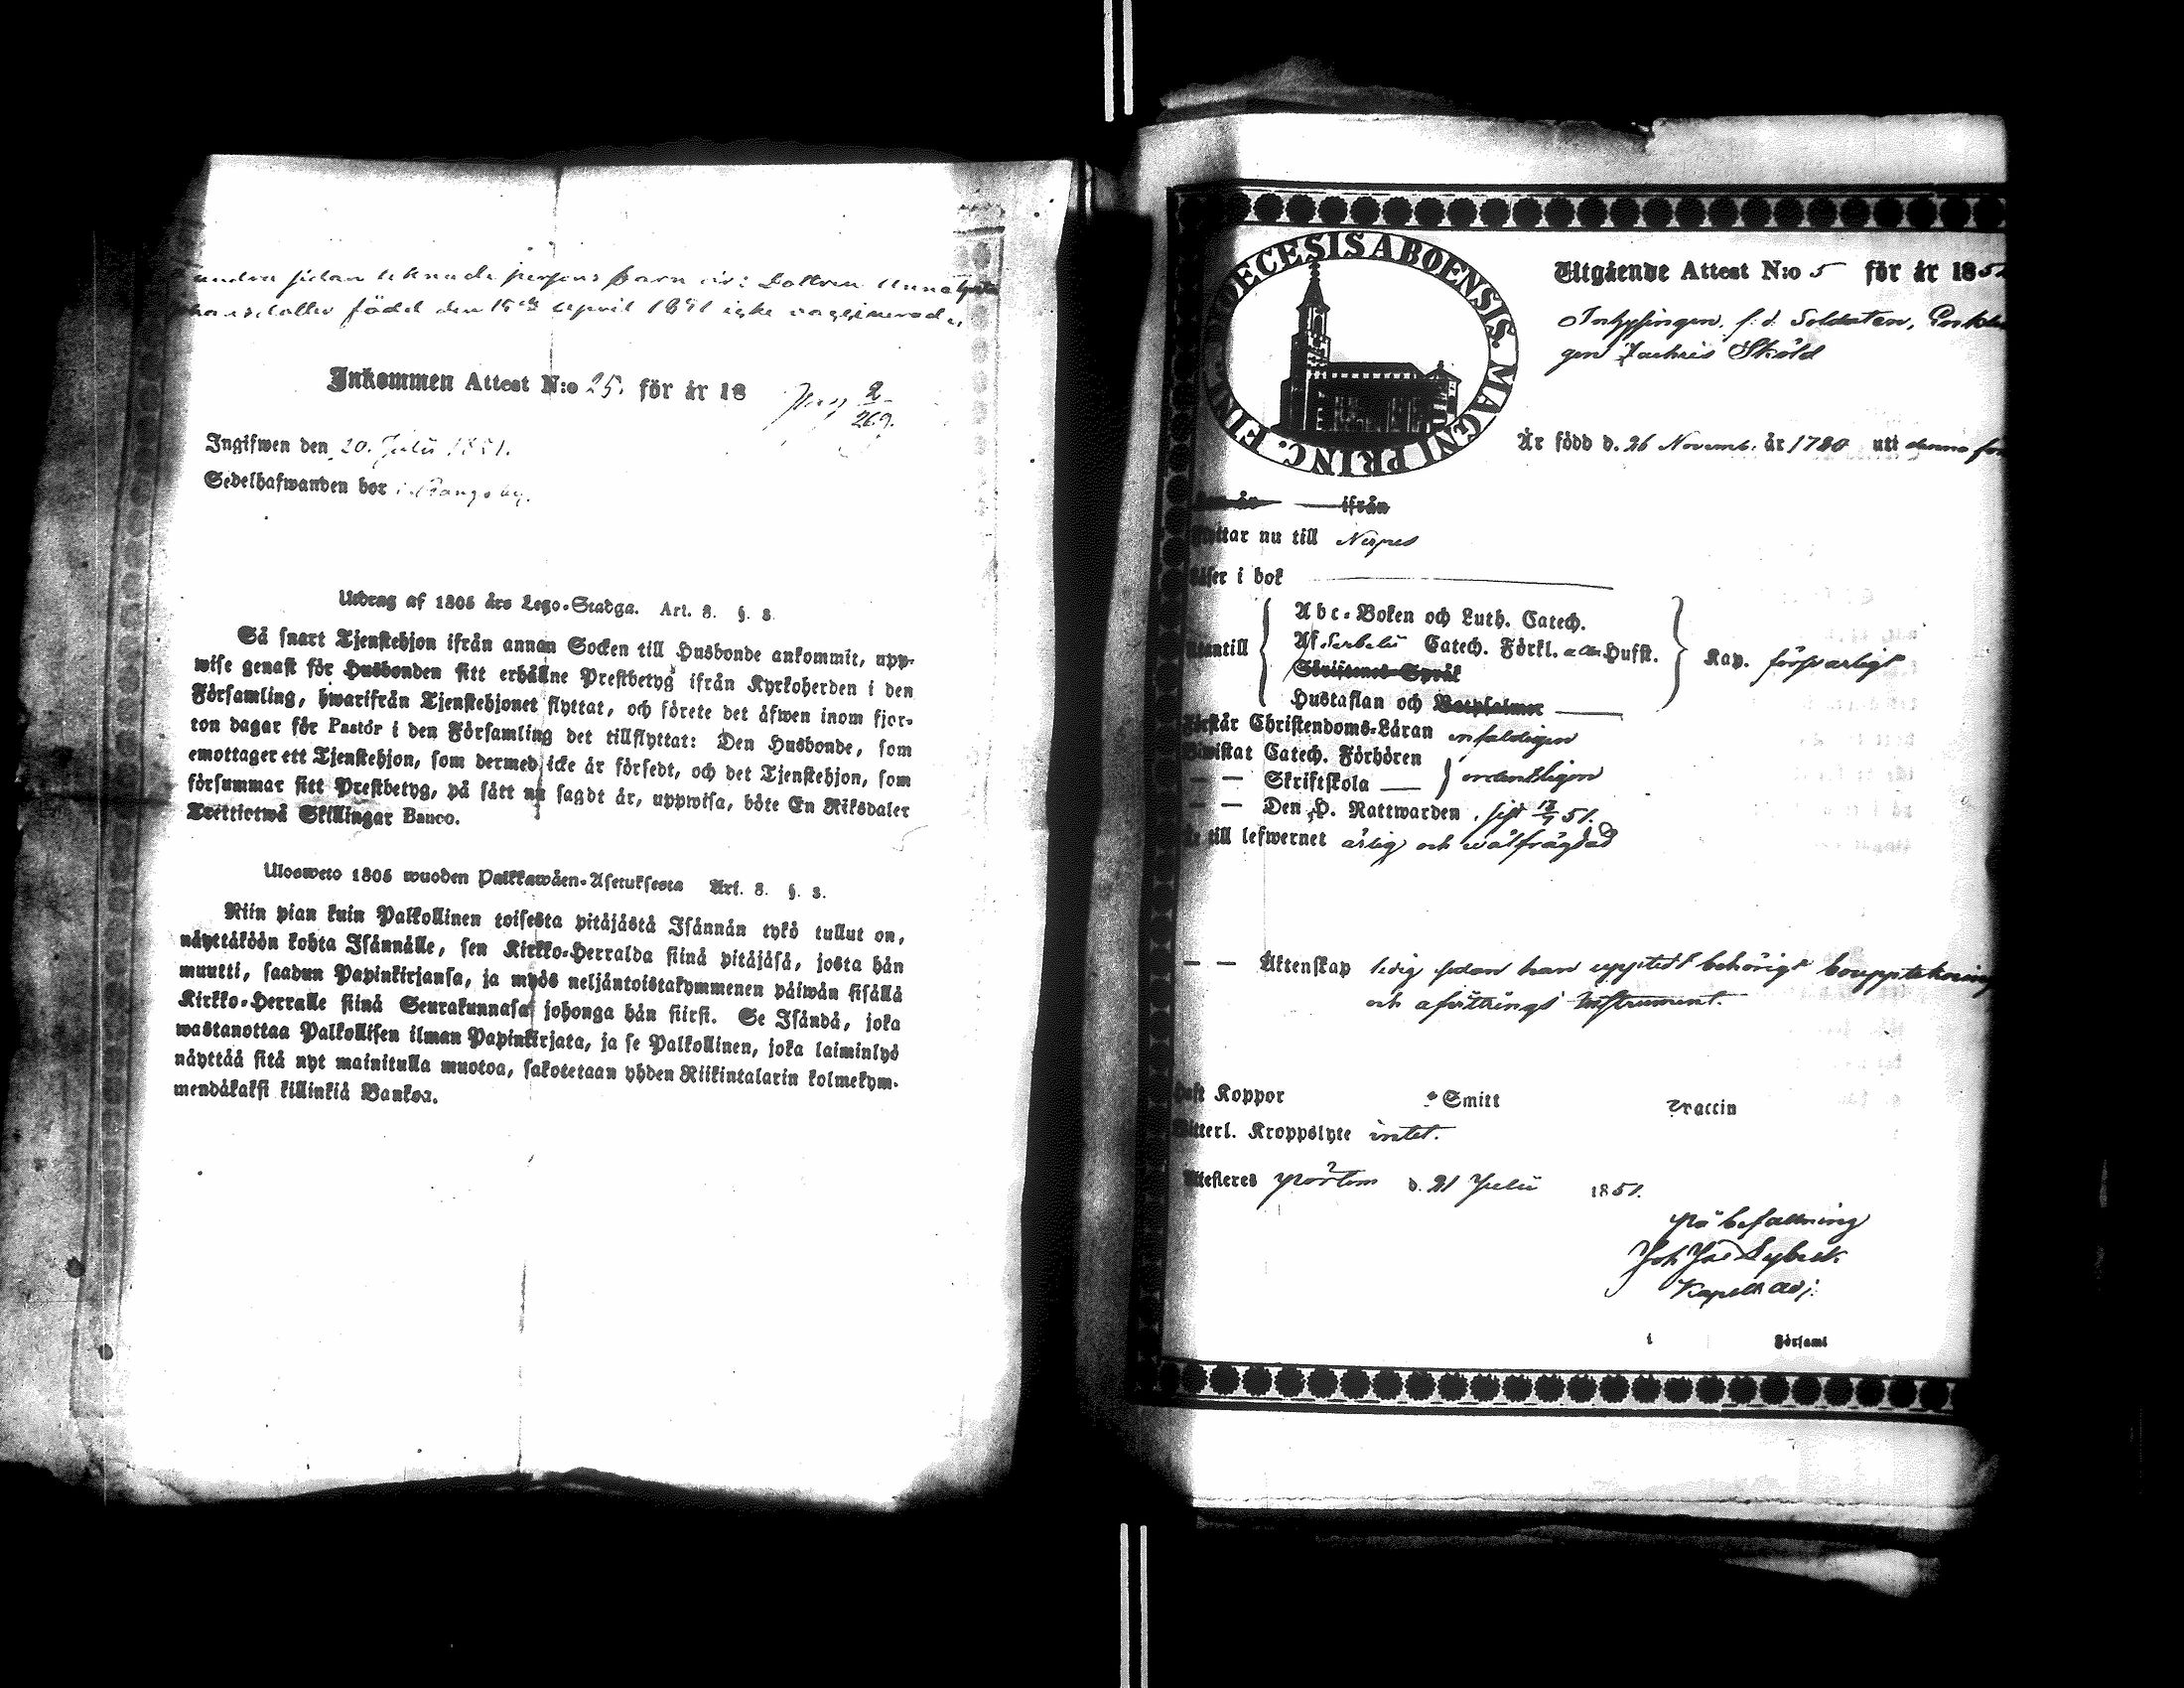 andra sidan teknade persons barn är: Dottren Anna
dotter född den 15de April 1851 icke vaccinerad.
Inkommen Attest N:o 25. för år 18
Pag 2
269.
Ingifwen den 20. Julii 1851.
Sedelhafwanden bor i
Utdrag af 1805 års Lego-Stadga. Art. 8. §. 8.
Så snart Tjenstehjon ifrån annan Socken till Husbonde ankommit, upp-
wise genast för Husbonden sitt erhållne Prestbetyg ifrån Kyrkoherden i den
Församling, hwarifrån Tjenstehjonet flyttat, och förete det äfwen inom fjor-
ton dagar för Pastor i den Församling det tillflyttat: Den Husbonde, som
emottager ett Tjenstehjon, som dermed icke är försedt, och det Tjenstehjon, som
försummar sitt Prestbetyg, på sätt nu sagdt är, uppwisa, böte En Riksdaler
Trettiotwå Skillingar Banco.
Ulosweto 1805 wuoden Palkkawäen-Asetuksesta Art. 8. §. 8.
Niin pian kuin Palkollinen toisesta pitäjästä Isännän tykö tullut on,
näyttäköön kohta Isännälle, sen Kirkko-Herralda siinä pitäjäsä, josta hän
muutti, saadun Papinkirjansa, ja myös neljäntoistakymmenen päiwän sisällä
Kirkko-Herralle siinä Seurakunnasa johonga hän siirsi. Se Isändä, joka
wastanottaa Palkollisen ilman Papinkirjata, ja se Palkollinen, joka laiminlyö
näyttää sitä nyt mainitulla muotoa, sakotetaan yhden Riikintalarin kolmekym-
mendäkaksi killinkiä Bankoa.
DIOECESIS ABOENSIS. MAGNI PRINC. FINL.
Utgående Attest N:o 5 för år 185
Inhysingen, f: d: Soldaten, Enklin
gen Zachris Sköld
Är född d. 26 Novemb. år 1780 uti denna för
ifrån
Flyttar nu till Nerpes
Läser i bok
Utantill
Abc-Boken och Luth. Catech.
Af Serbelii Catech. Förkl. Husst.
Skriftenes Språk
Hustaflan och Botpsalmer
Kap. försvarligt
Förstår Christendoms-Läran enfaldigen
Bewistat Catech. Förhören
— — Skriftskola ordentligen
— — Den H. Nattwarden sist 13/7 51.
Är till lefwernet ärlig och wälfrägdad
— — Äktenskap ledig sedan han upptedt behörigt bouppteknings
och afvittrings Instrument.
Haft Koppor Smitt Vaccin
Witterl. Kroppslyte intet.
Attesteres Pörtom d. 21 Julii 1851.
På befallning
Joh Jac Lybeck
Kapells adj:
i Församl